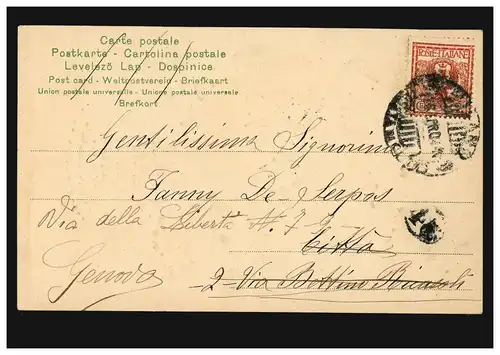 Carte postale
Postkarte - Cartolina postale
Levelező Lap - Dopisnice
Post card - Weltpostverein - Briefkaart
Union postale universelle - Unione postale universale
Brefkort
POSTE ITALIANE
Gentilissima Signorina
Fanny De-Serpos
Via della Libertà N. 7-8
Città
Genova
2-Via Bettino Ricasoli